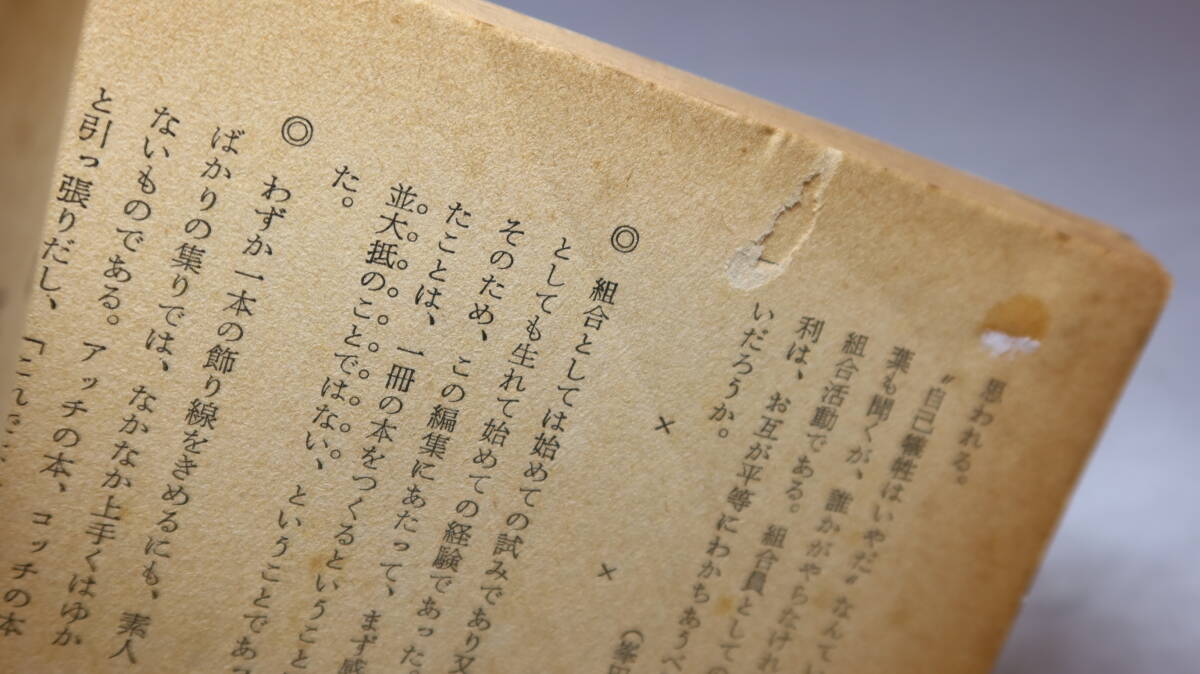 思われる。
〝自己犠牲はいやだ〟なんて
葉も聞くが、誰かがやらなけれ
組合活動である。組合員としての
利は、お互が平等にわかちあうべ
いだろうか。
× ×
◎ 組合としては始めての試みであり又
としても生れて始めての経験であった。
そのため、この編集にあたって、まず感
たことは、一冊の本をつくるということ
並大抵のことではない、ということであ
た。
◎ わずか一本の飾り線をきめるにも、素人
ばかりの集りでは、なかなか上手くはゆか
ないものである。アッチの本、コッチの本
と引っ張りだし、